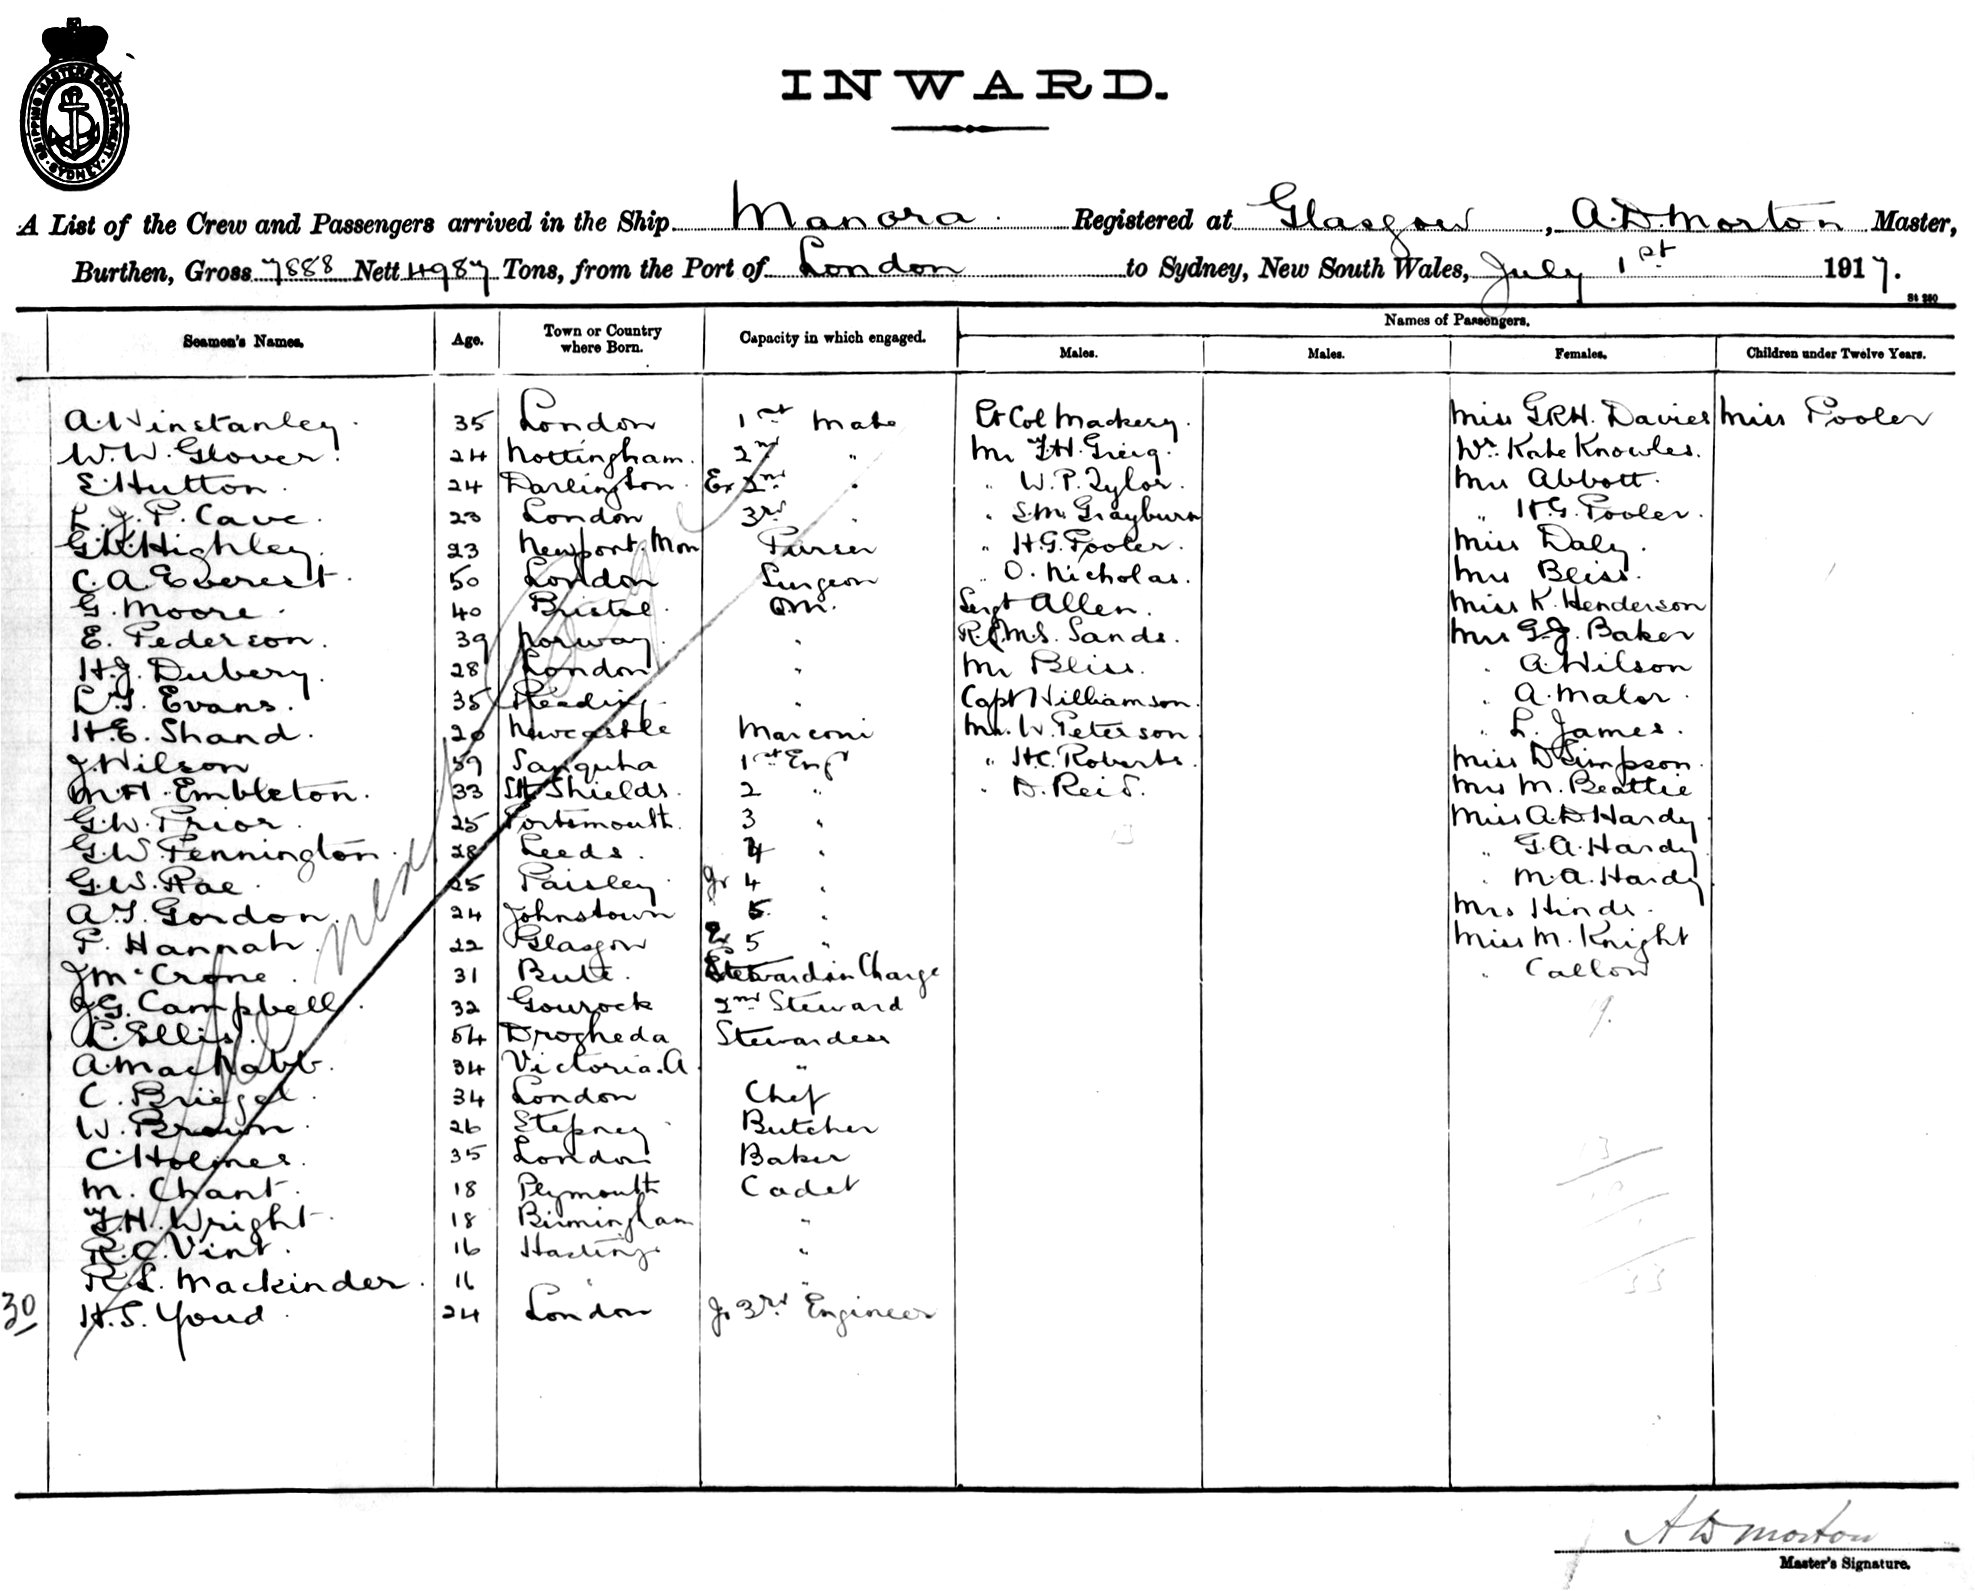 SHIPPING MASTERS DEPARTMENT SYDNEY
INWARD.
A List of the Crew and Passengers arrived in the Ship Manora Registered at Glasgow, A.D. Morton Master,
Burthen, Gross 7888 Nett 4987 Tons, from the Port of London to Sydney, New South Wales, July 1st 1917.
St 280
Names of Passengers.
Seamen's Names. Age. Town or Country where Born. Capacity in which engaged. Males. Males. Females. Children under Twelve Years.
A. Winstanley. 35 London 1st Mate Lt Col Mackery. Miss G.R.H. Davies Miss Pooler
W.W. Glover. 24 Nottingham. 2nd " Mr F.H. Greig. Kate Knowles.
E. Hutton. 24 Darlington. Ex 2nd " " W.P. Tylor. Mrs Abbott.
L.J.P. Cave. 23 London 3rd " " S.M. Grayburn " H.G. Pooler.
Highley. 23 Newport. Mon Purser " H.G. Pooler. Miss Daly.
C.A. Everest. 50 London Surgeon " O. Nicholas. Mrs Bliss.
G. Moore. 40 Bristol. QM. Sergt Allen. Miss K. Henderson
E. Pederson. 39 Norway. " Sands. Mrs G.J. Baker
H.J. Dubery. 28 London " Mr Bliss. " A. Wilson
Evans. 35 Reading. " Capt Williamson. " A. Malor.
H.E. Shand. 20 Newcastle Marconi Mr. W. Peterson " L. James.
J. Wilson 59 Sanquha 1st Engr " H.C. Roberts. Miss D Simpson.
M.H. Embleton. 33 Sth Shields. 2 " " D. Reid. Mrs M. Beattie
G.W. Prior. 25 Portsmouth. 3 " Miss A.D. Hardy
G.W. Pennington. 28 Leeds. 4 " " G.A. Hardy
G.W. Rae. 25 Paisley. Jr 4 " " M.A. Hardy
Gordon. 24 Johnstown 5 " Mrs Hinds.
P. Hannah. 22 Glasgow Ex 5 " Miss M. Knight
J McCrone. 31 Bute. Steward in Charge " Callow
J.G. Campbell. 32 Gourock 2nd Steward 19.
L. Ellis. 54 Drogheda Stewardess
A. MacNabb. 34 Victoria. A "
C. Briegel. 34 London Chef
W. Brown. 26 Stepney Butcher
C. Holmes. 35 London Baker
M. Chant. 18 Plymouth Cadet
F.H. Wright. 18 Birmingham "
R.C. Vint. 16 Hastings "
R.L. Mackinder. 16 " "
30 H.S. Youd. 24 London Jr 3rd Engineer
A D Morton
Master's Signature.